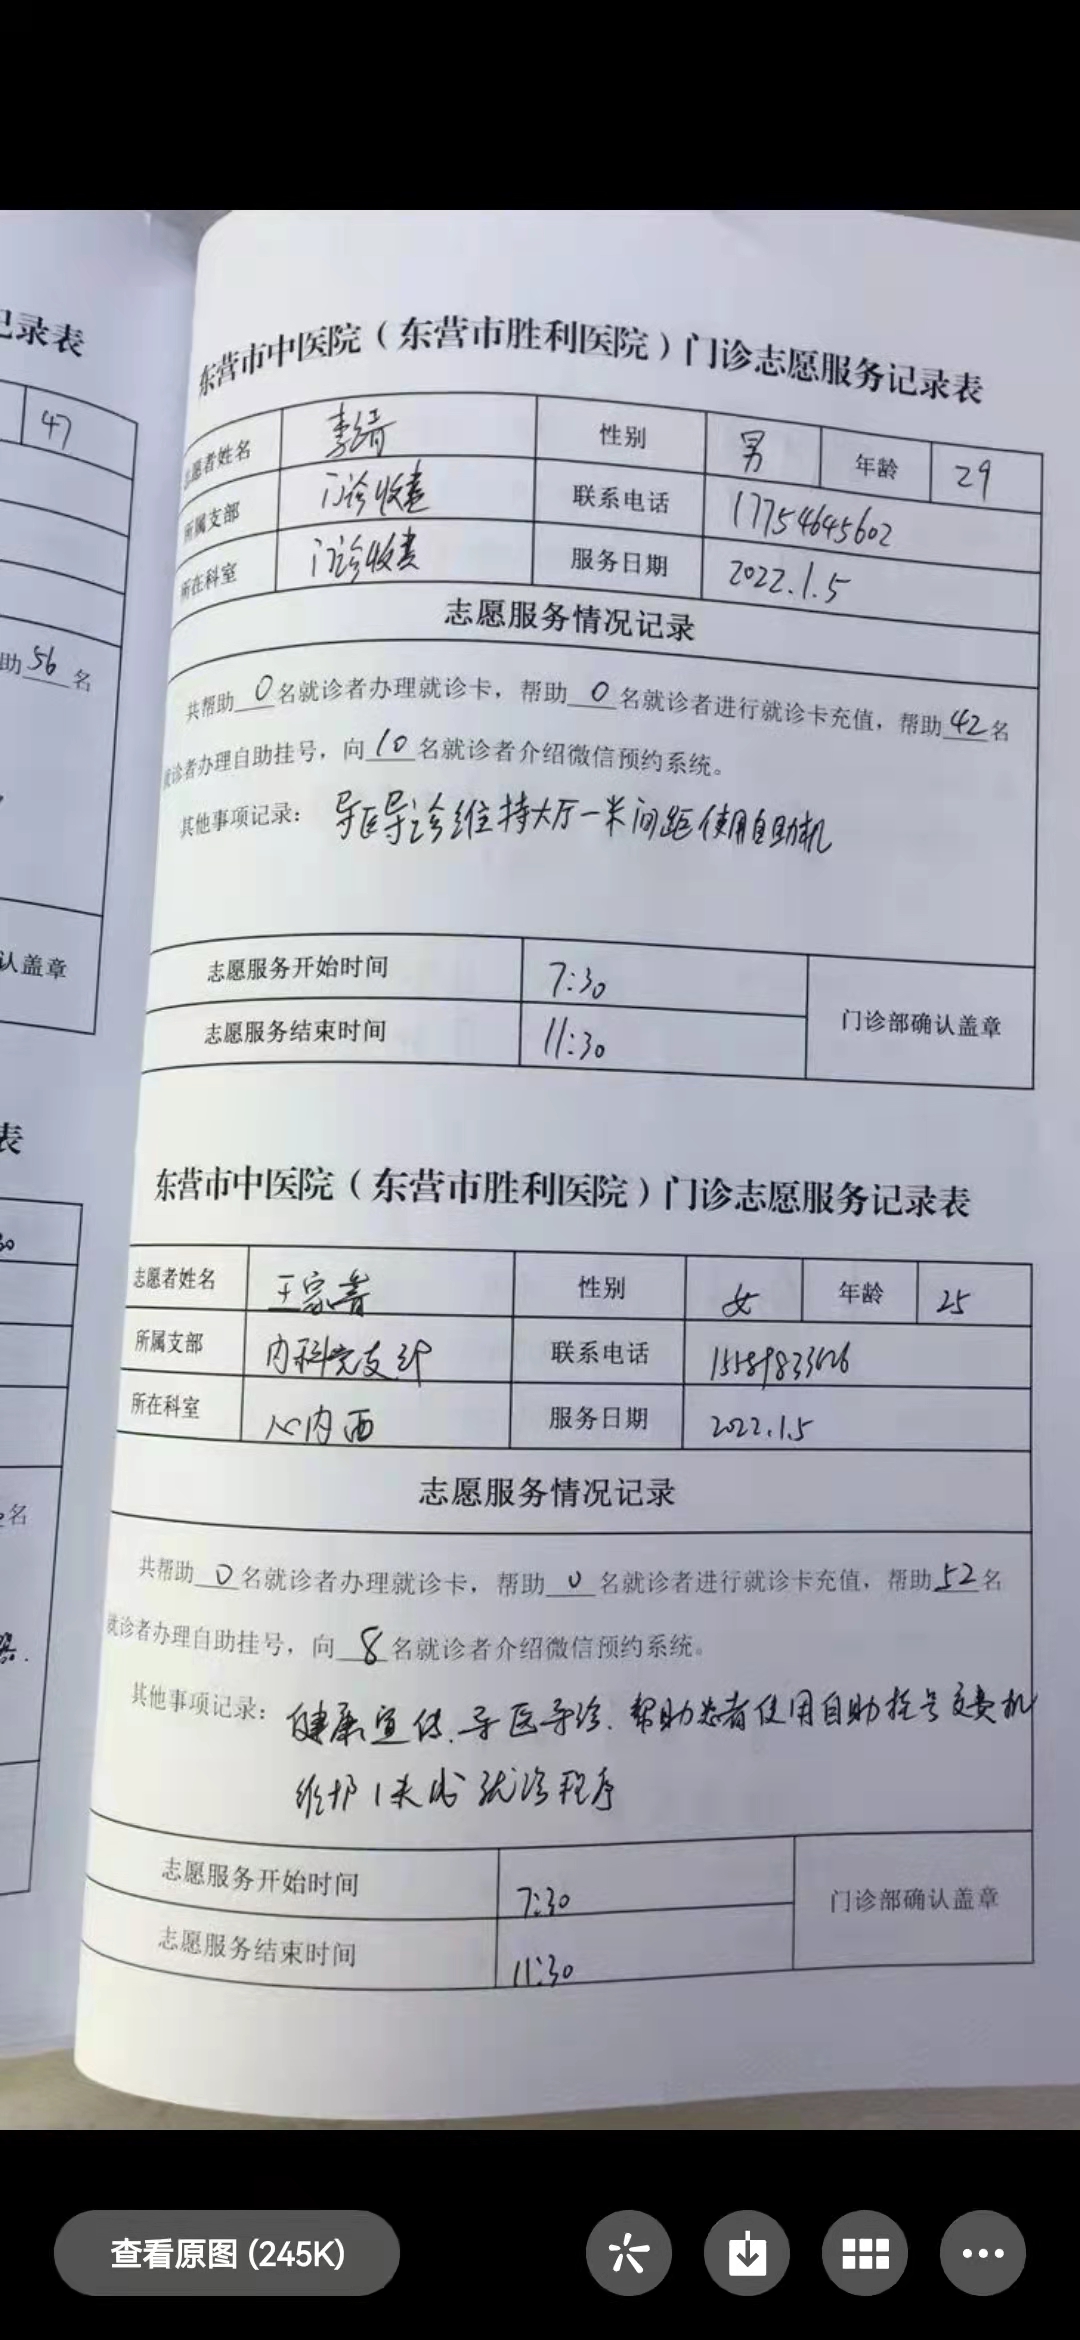 记录表
47
助56名
认盖章
表
30
名
东营市中医院（东营市胜利医院）门诊志愿服务记录表
志愿者姓名 李绪 性别 男 年龄 29
所属支部 门诊收费 联系电话 17754645602
所在科室 门诊收费 服务日期 2022.1.5
志愿服务情况记录
共帮助0名就诊者办理就诊卡，帮助0名就诊者进行就诊卡充值，帮助42名
就诊者办理自助挂号，向10名就诊者介绍微信预约系统。
其他事项记录： 导医导诊维持大厅一米间距使用自助机
志愿服务开始时间 7:30
门诊部确认盖章
志愿服务结束时间 11:30
东营市中医院（东营市胜利医院）门诊志愿服务记录表
志愿者姓名 王家 性别 女 年龄 25
所属支部 内科党支部 联系电话
所在科室 心内西 服务日期 2022.1.5
志愿服务情况记录
共帮助0名就诊者办理就诊卡，帮助0名就诊者进行就诊卡充值，帮助52名
就诊者办理自助挂号，向8名就诊者介绍微信预约系统。
其他事项记录： 健康宣传、导医导诊、帮助患者使用自助挂号交费机
维护1米 就诊程序
志愿服务开始时间 7:30
门诊部确认盖章
志愿服务结束时间 11:30
查看原图 (245K)